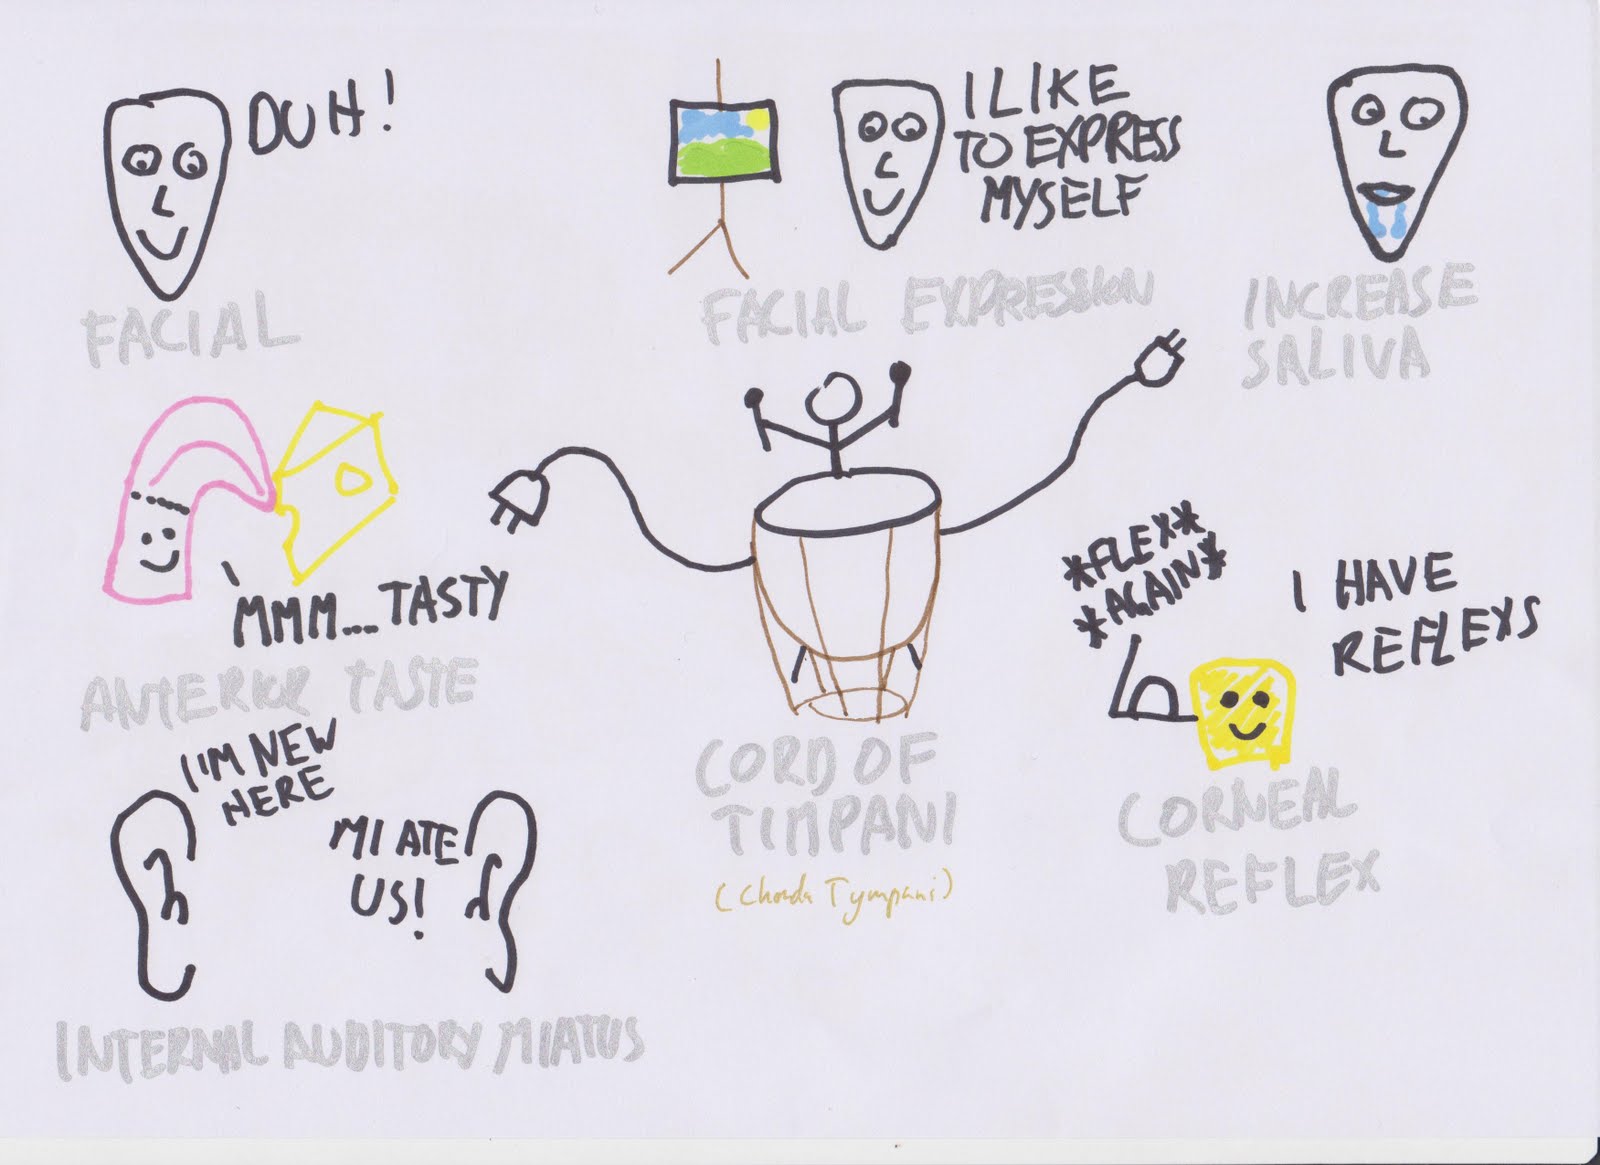 DUH!
FACIAL
I LIKE
TO EXPRESS
MYSELF
FACIAL EXPRESSION
INCREASE
SALIVA
MMM....TASTY
ANTERIOR TASTE
*FLEX*
*AGAIN*
I HAVE
REFLEXS
CORNEAL
REFLEX
CORD OF
TIMPANI
(Chorda Tympani)
I'M NEW
HERE
MI ATE
US!
INTERNAL AUDITORY MIATUS